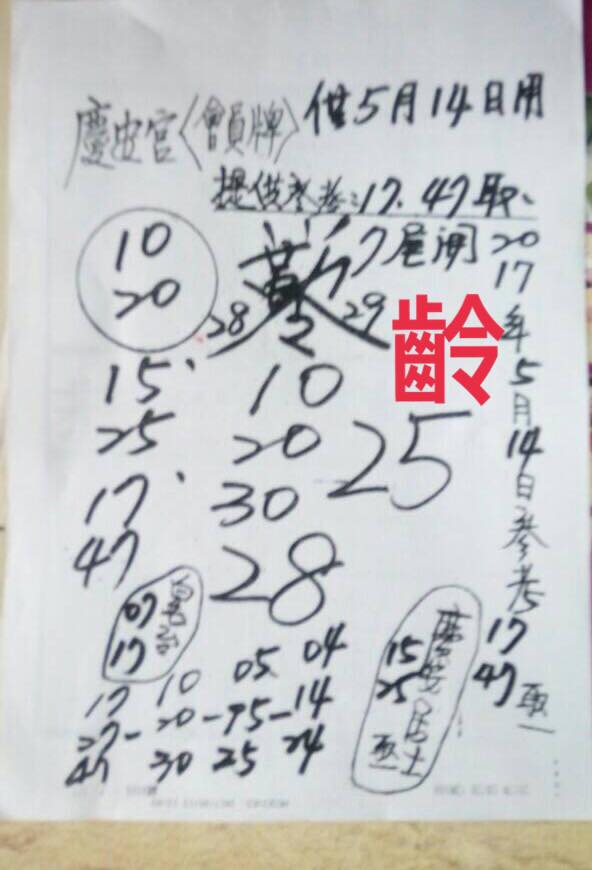 慶安宮〈會員牌〉供5月14日用
提供參考:17、47取
7尾開
10
20
28
29
齡
15、
25
17、
47
10
20
30
25
28
2017年5月14日參考
17
47取
07
17
15
25
取一
17 10 05 04
27-20-15-14
47 30 25 24